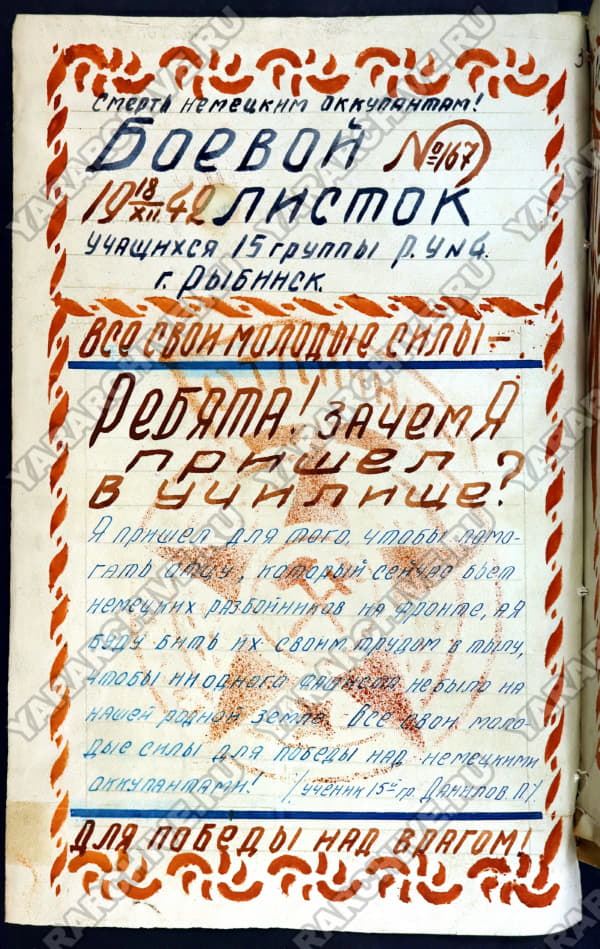 Смерть немецким оккупантам!
Боевой №167
19 18/XII. 42 листок
учащихся 15 группы Р.У №4.
г. Рыбинск.
Все свои молодые силы –
Ребята! зачем я
пришел
в училище?
Я пришел для того, чтобы помо-
гать отцу, который сейчас бьет
немецких разбойников на фронте, а я
буду бить их своим трудом в тылу,
чтобы ни одного фашиста не было на
нашей родной земле. Все свои моло-
дые силы для победы над немецкими
оккупантами! /ученик 15й гр. Данилов П./
Для победы над врагом!
YARARCHIVE.RU